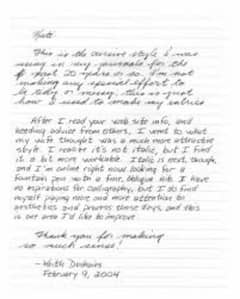 Kate
This is the cursive style I was
using in my journals for the
past 20 years or so. I'm not
making any special effort to
be tidy or messy, this is just
how I used to make my entries
After I read your web site info, and
heeding advice from others, I went to what
my wife thought was a much more attractive
style. I realize it's not italic, but I find
it a bit more workable. Italic is next, though,
and I'm online right now looking for a
fountain pen with a fine, oblique nib. I have
no aspirations for calligraphy, but I do find
myself paying more and more attention to
aesthetics and process these days, and this
is one area I'd like to improve
Thank you for making
so much sense!
- Keith
February 9, 2004